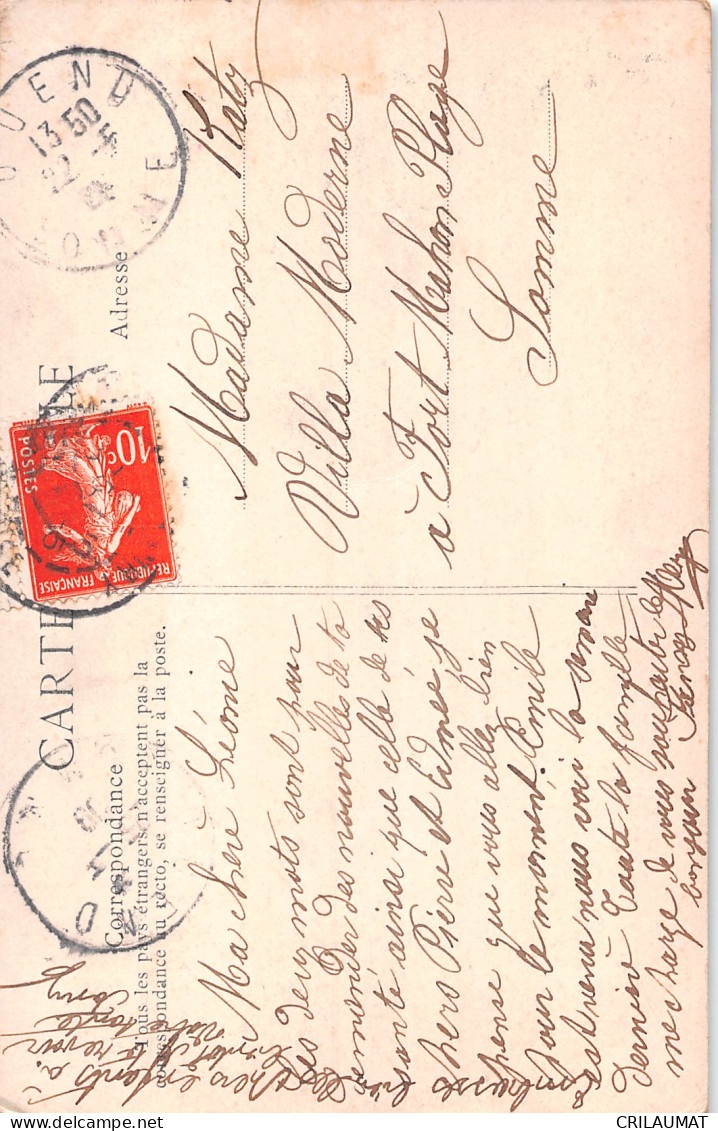 CARTE
LE
Correspondance
Tous les pays étrangers n'acceptent pas la
correspondance au recto, se renseigner à la poste.
Adresse
QUEND
13 50
SOMME
10c
POSTES
REPUBLIQUE FRANÇAISE
Madame Katz
Villa Moderne
à Fort Mahon Plage
Somme
Ma chère Léonie
Ces deux mots sont pour
demander des nouvelle de ta
santé ainsi que celle de tes
chers Pierre et Edmée je
pense que vous allez bien
pour le moment. Emile
est venu nous voir la semaine
dernière Toute la famille
me charge de vous souhaiter le
bonjour
Embrasse
chers enfants
à te revoir
Votre tante
CRILAUMAT